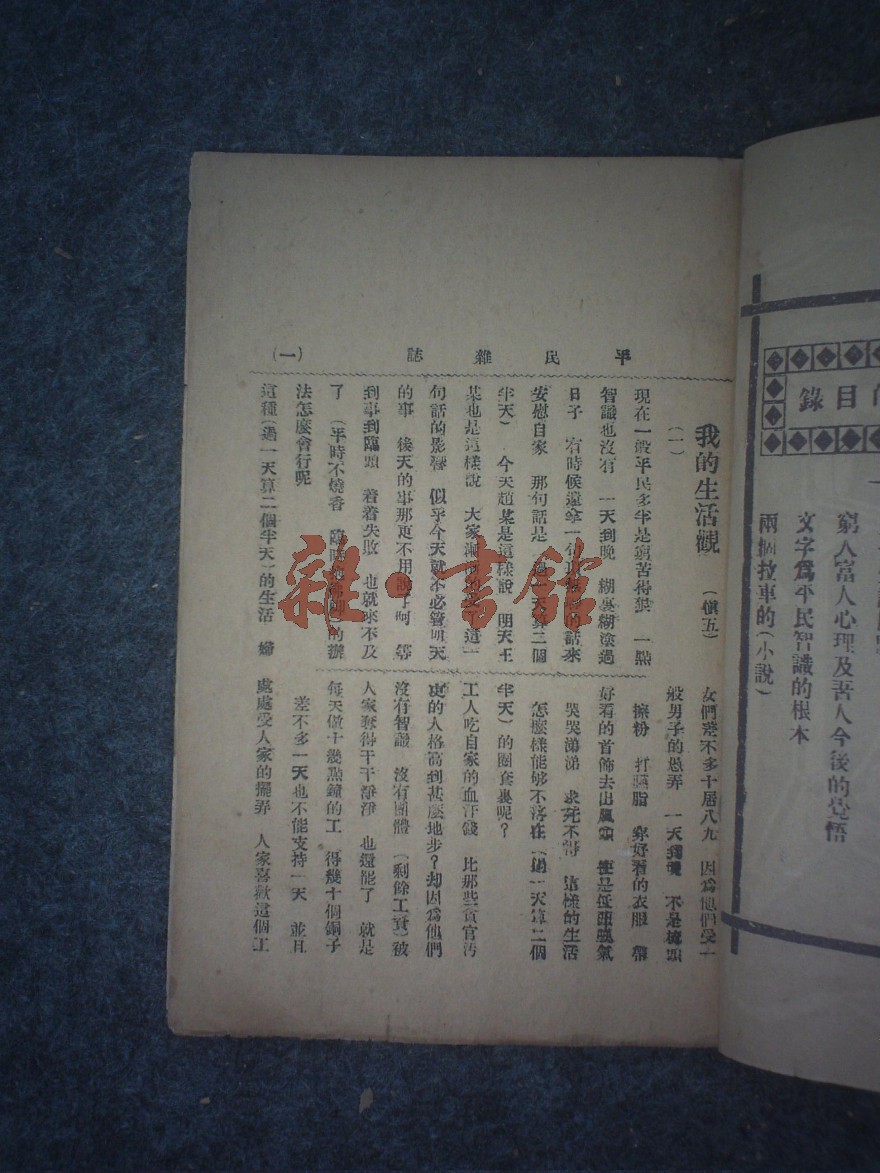 平民雜誌 (一)
我的生活觀 (愼五)
(一)
現在一般平民多半是窮苦得狠 一點
智識也沒有 一天到晚 糊裏糊塗過
日子 有時候還拿一句 的話來
安慰自家 那句話是 過一天算二個
半天) 今天趙某是這樣說 明天王
某也是這樣說 大家 的受了這一
句話的影響 似乎今天就不必管明天
的事 後天的事那更不用說了呵 等
到事到臨頭 着着失敗 也就來不及
了 (平時不燒香 臨時 的辦
法怎麼會行呢
這種(過一天算二個半天)的生活 婦
女們差不多十居八九 因爲他們受一
般男子的愚弄 一天到晚 不是梳頭
擦粉 打胭脂 穿好看的衣服 帶
好看的首飾去出風頭 便是
哭哭啼啼 求死不得 這樣的生活
怎麼樣能够不落在(過一天算二個
半天)的圈套裏呢?
工人吃自家的血汗錢 比那些貪官汚
吏的人格高到甚麽地步?却因爲他們
沒有智識 沒有團體 (剩餘工資)被
人家奪得干干淨淨 也還罷了 就是
每天做十幾點鐘的工 得幾十個銅子
差不多一天也不能支持一天 並且
處處受人家的擺弄 人家喜歡這個工
目錄
窮人富人心理及吾人今後的覺悟
文字爲平民智識的根本
兩個拉車的(小說)
雜·書館